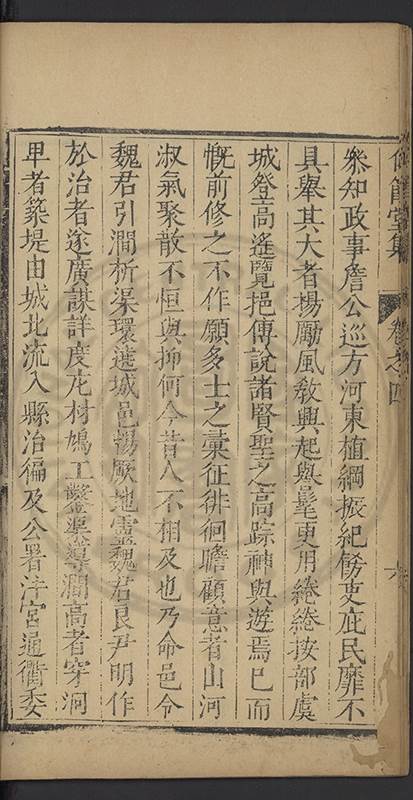 竹館堂集 卷之四 六
叅知政事詹公巡方河東植綱振紀飭吏庇民靡不
具舉其大者揚勵風敎興起譽髦更用惓惓按部虞
城登高遙覽挹傳說諸賢聖之高踪神與遊焉已而
慨前修之不作願多士之彙征徘徊瞻顧意者山河
淑氣聚散不恒與抑何今昔人不相及也乃命邑令
魏君引澗析渠環遶城邑揚厥地靈魏君良尹明作
於治者遂廣謀詳度庀材鳩工鑿渠導澗高者穿洞
卑者築堤由城北流入縣治徧及公署泮宮通衢委